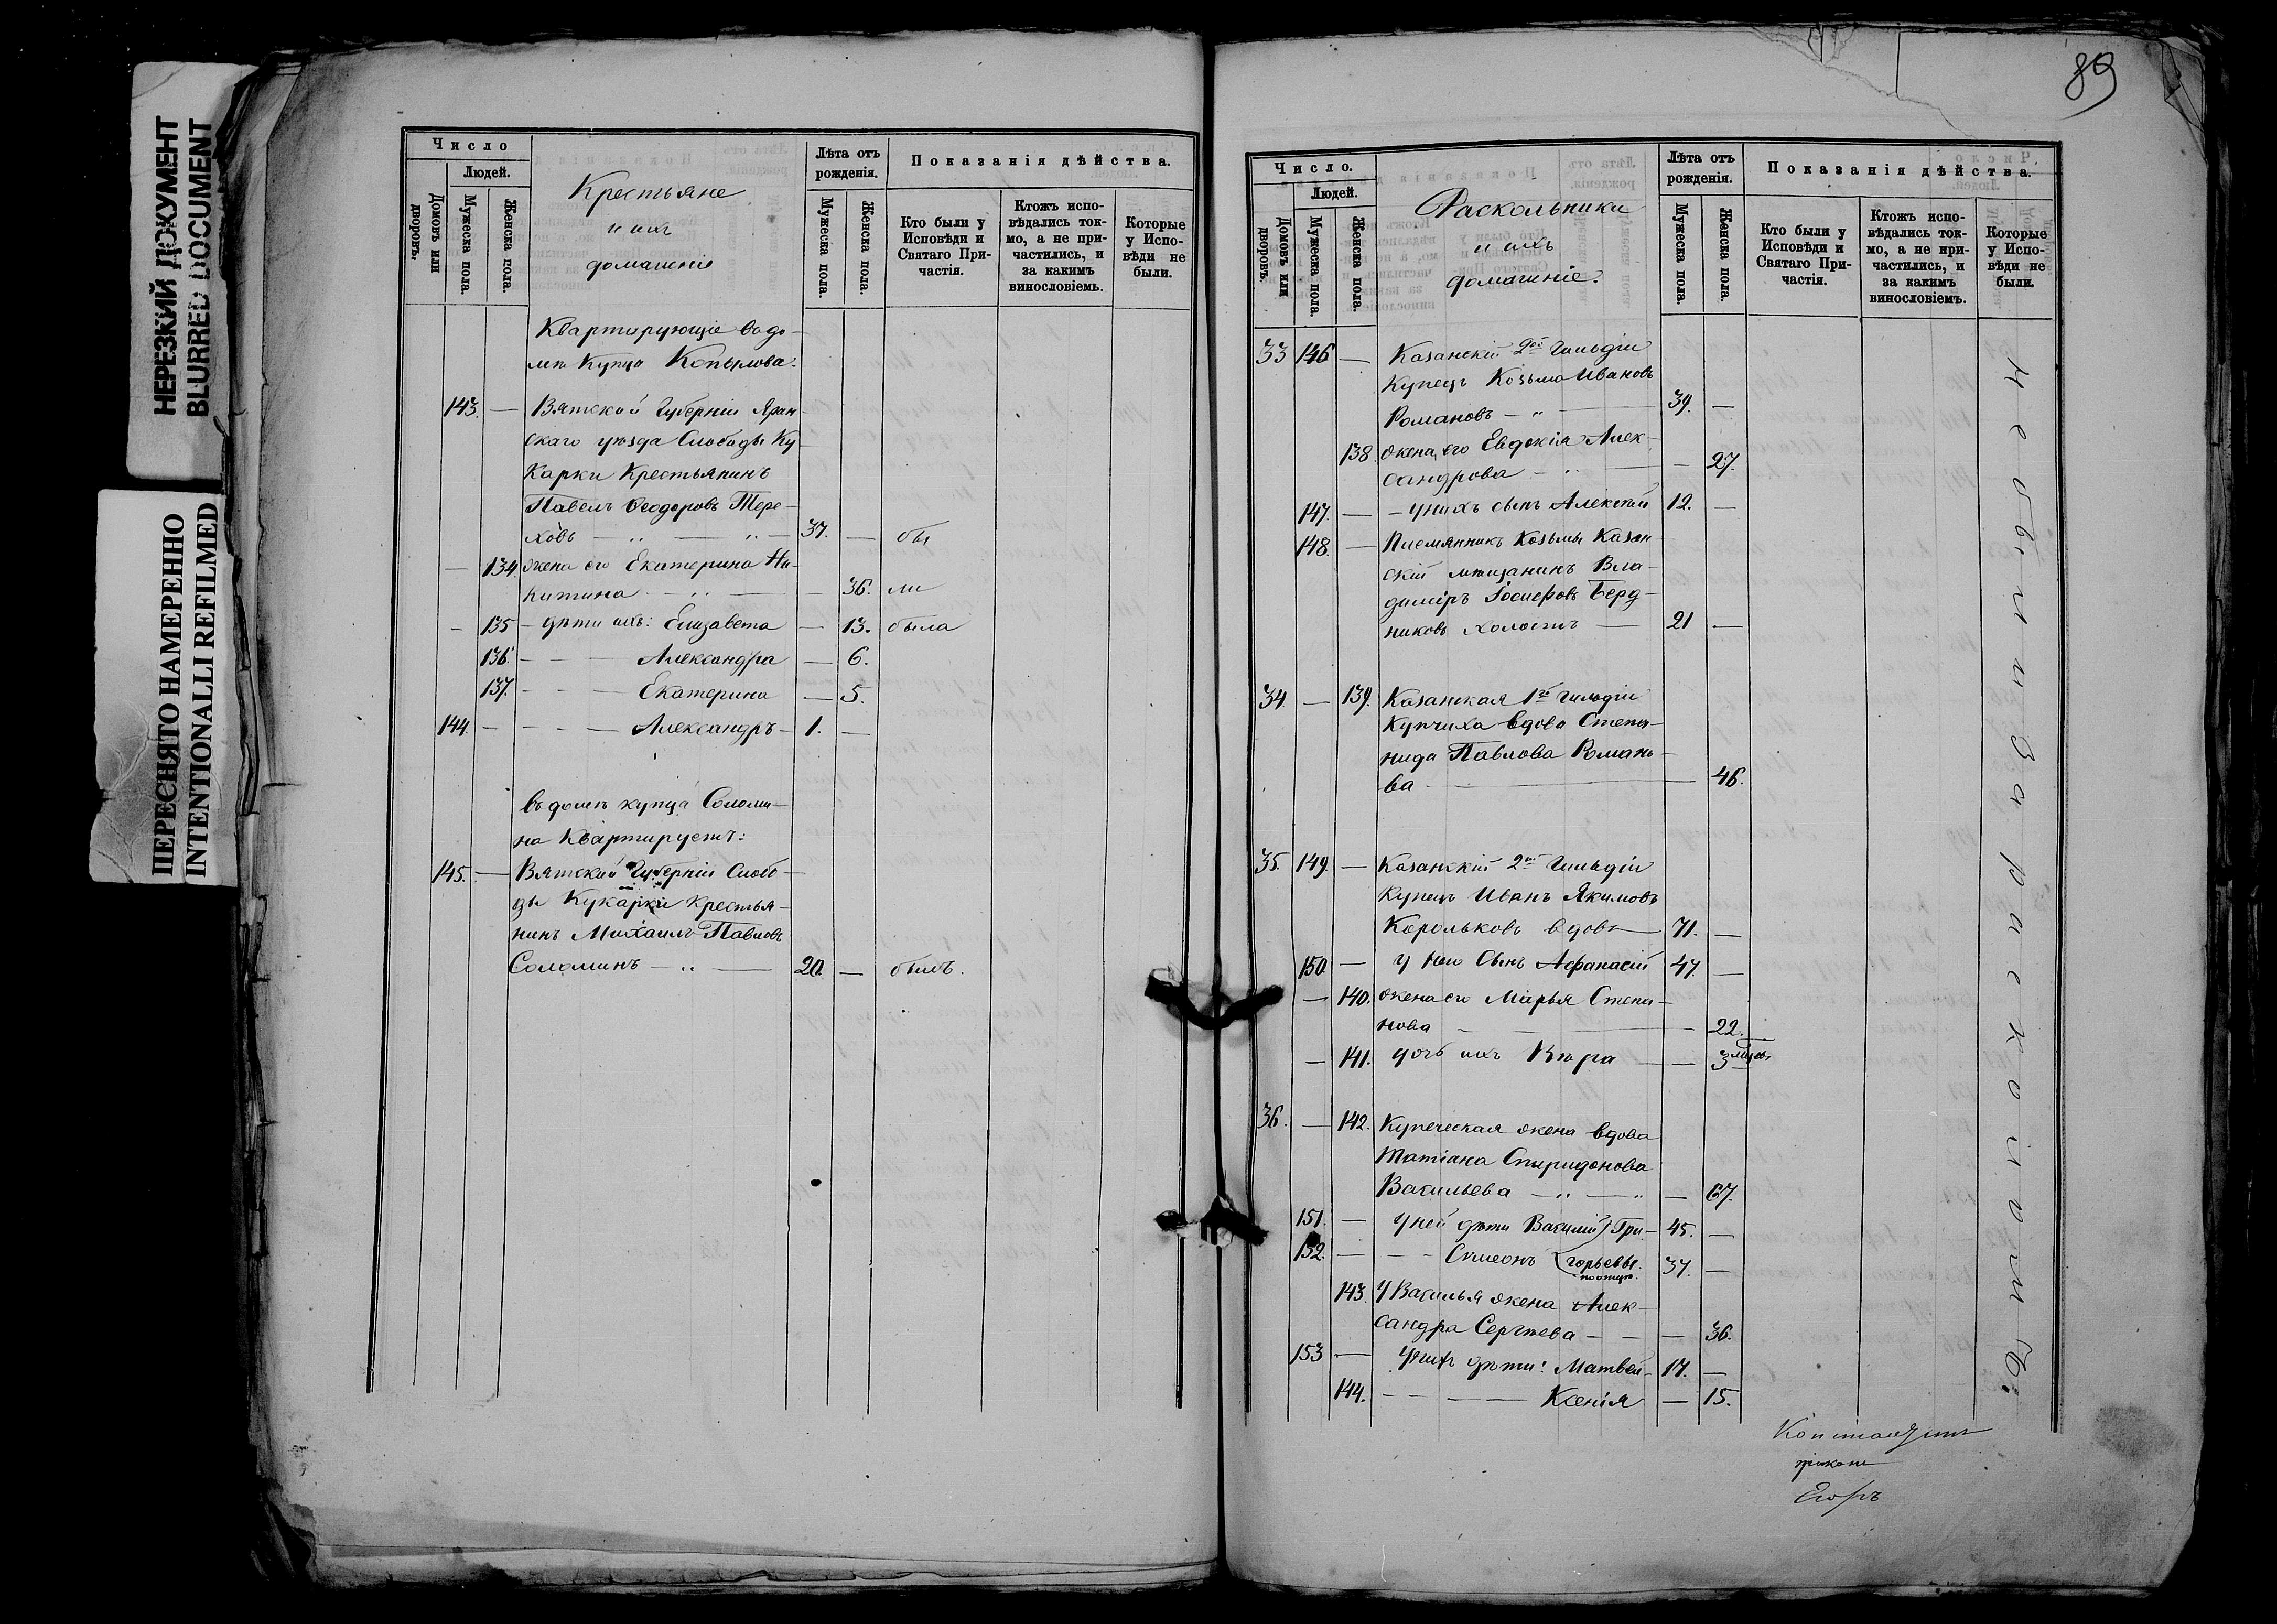 НЕРЕЗКИЙ ДОКУМЕНТ
BLURRED DOCUMENT
ПЕРЕСНЯТО НАМЕРЕННО
INTENTIONALLI REFILMED
Число
Людей.
Домовъ или дворовъ.
Мужеска пола.
Женска пола.
Крестьяне
и ихъ
домашніе
Лѣта отъ рожденія.
Мужеска пола.
Женска пола.
Показанія дѣйства.
Кто были у Исповѣди и Святаго Причастія.
Ктожъ исповѣдались токмо, а не причастились, и за какимъ винословіемъ.
Которые у Исповѣди не были.
Квартирующіе в до-
мѣ Купца Копылова.
143. — Вятской Губерніи Яран-
скаго уѣзда Слободы Ку-
карки Крестьянинъ
Павелъ Ѳеодоровъ Тере-
ховъ — 37. — бы
— 134. жена его Екатерина Ни-
китина — 36. ли
— 135 — дѣти ихъ: Елизавета — 13. была
136. — Александра — 6.
137. — Екатерина — 5.
144. — Александръ — 1. —
въ домѣ купца Соломи-
на Квартируетъ:
145. — Вятской Губерніи Слобо-
ды Кукарки крестья-
нинъ Михаилъ Павловъ
Соломинъ — 20. — былъ.
89
Число.
Людей.
Домовъ или дворовъ.
Мужеска пола.
Женска пола.
Раскольники
и ихъ
домашніе.
Лѣта отъ рожденія.
Мужеска пола.
Женска пола.
Показанія дѣйства.
Кто были у Исповѣди и Святаго Причастія.
Ктожъ исповѣдались токмо, а не причастились, и за какимъ винословіемъ.
Которые у Исповѣди не были.
33 146 — Казанскій 2ой Гильдіи
Купецъ Козьма Ивановъ
Романовъ — 39. —
138. жена его Евдокія Алек-
сандрова — 27.
147. — у нихъ сынъ Алексѣй 12. —
148. — Племянникъ Козьмы Казан
скій мѣщанинъ Вла-
димiръ Іосифовъ Берд-
никовъ холостъ — 21 —
34. — 139. Казанская 1ой Гильдіи
Купчиха вдова Степа-
нида Павлова Романо-
ва — 46.
35. 149. — Казанскій 2ой Гильдіи
Купецъ Иванъ Якимовъ
Корольковъ вдовъ — 71. —
150. — у него Сынъ Аѳанасій 47. —
— 140. жена его Марья Степа-
нова — 22.
— 141. дочь ихъ Вѣра — 3 мѣся.
36. — 142. Купеческая жена вдова
Татіана Спиридонова
Васильева — 67.
151. — у ней дѣти Василій } Гри- 45. —
152. — Симеонъ { горьевы. 37. —
по отцу.
143. У Василья жена Алек-
сандра Сергѣева — 36.
153 — У нихъ дѣти: Матвѣй — 17. —
144. — Ксенія — 15.
Не были за расколомъ:
Егоръ